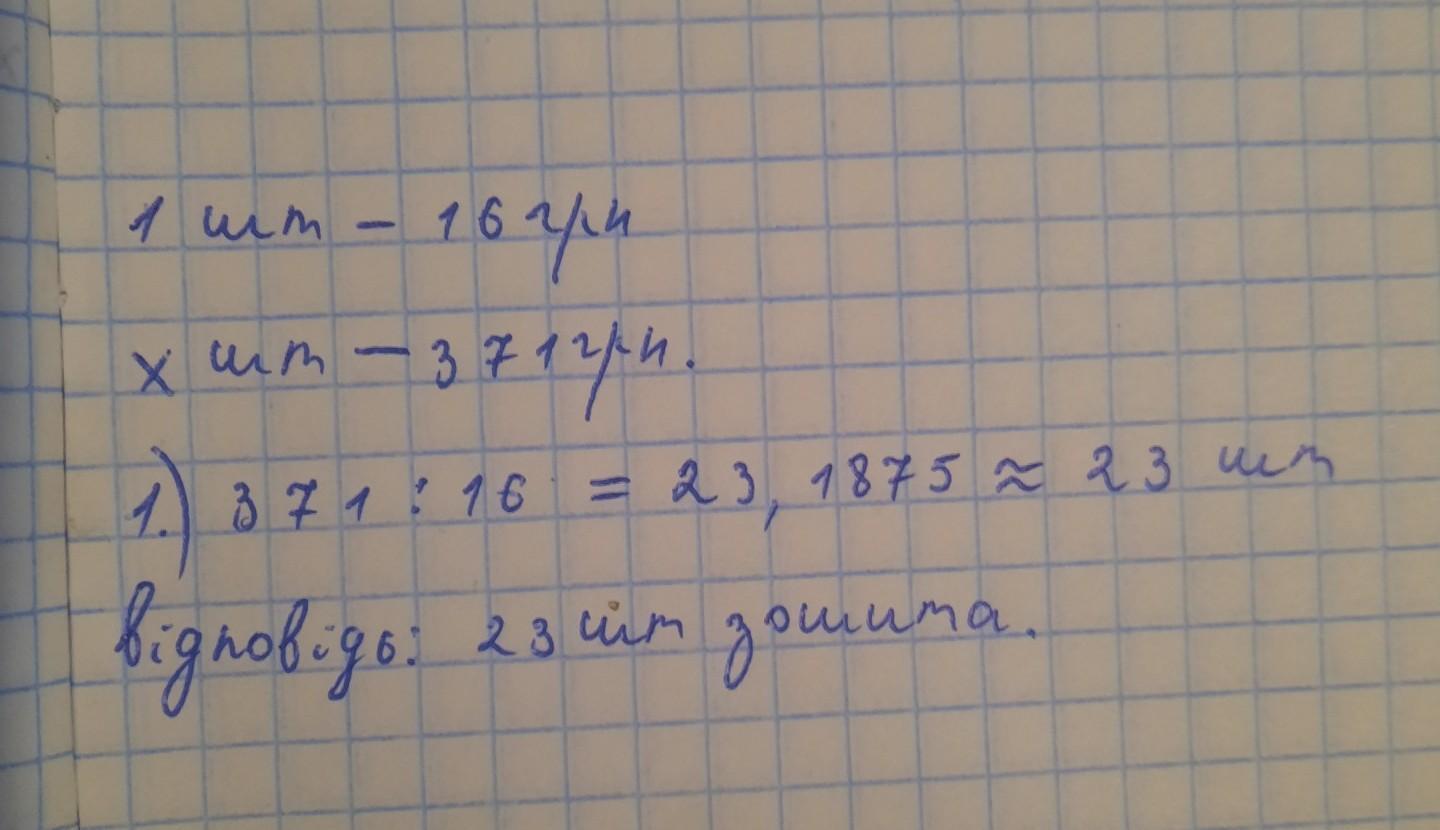 1 шт - 16 грн
x шт - 371 грн.
1.) 371 : 16 = 23,1875 ≈ 23 шт
Відповідь: 23 шт зошита.